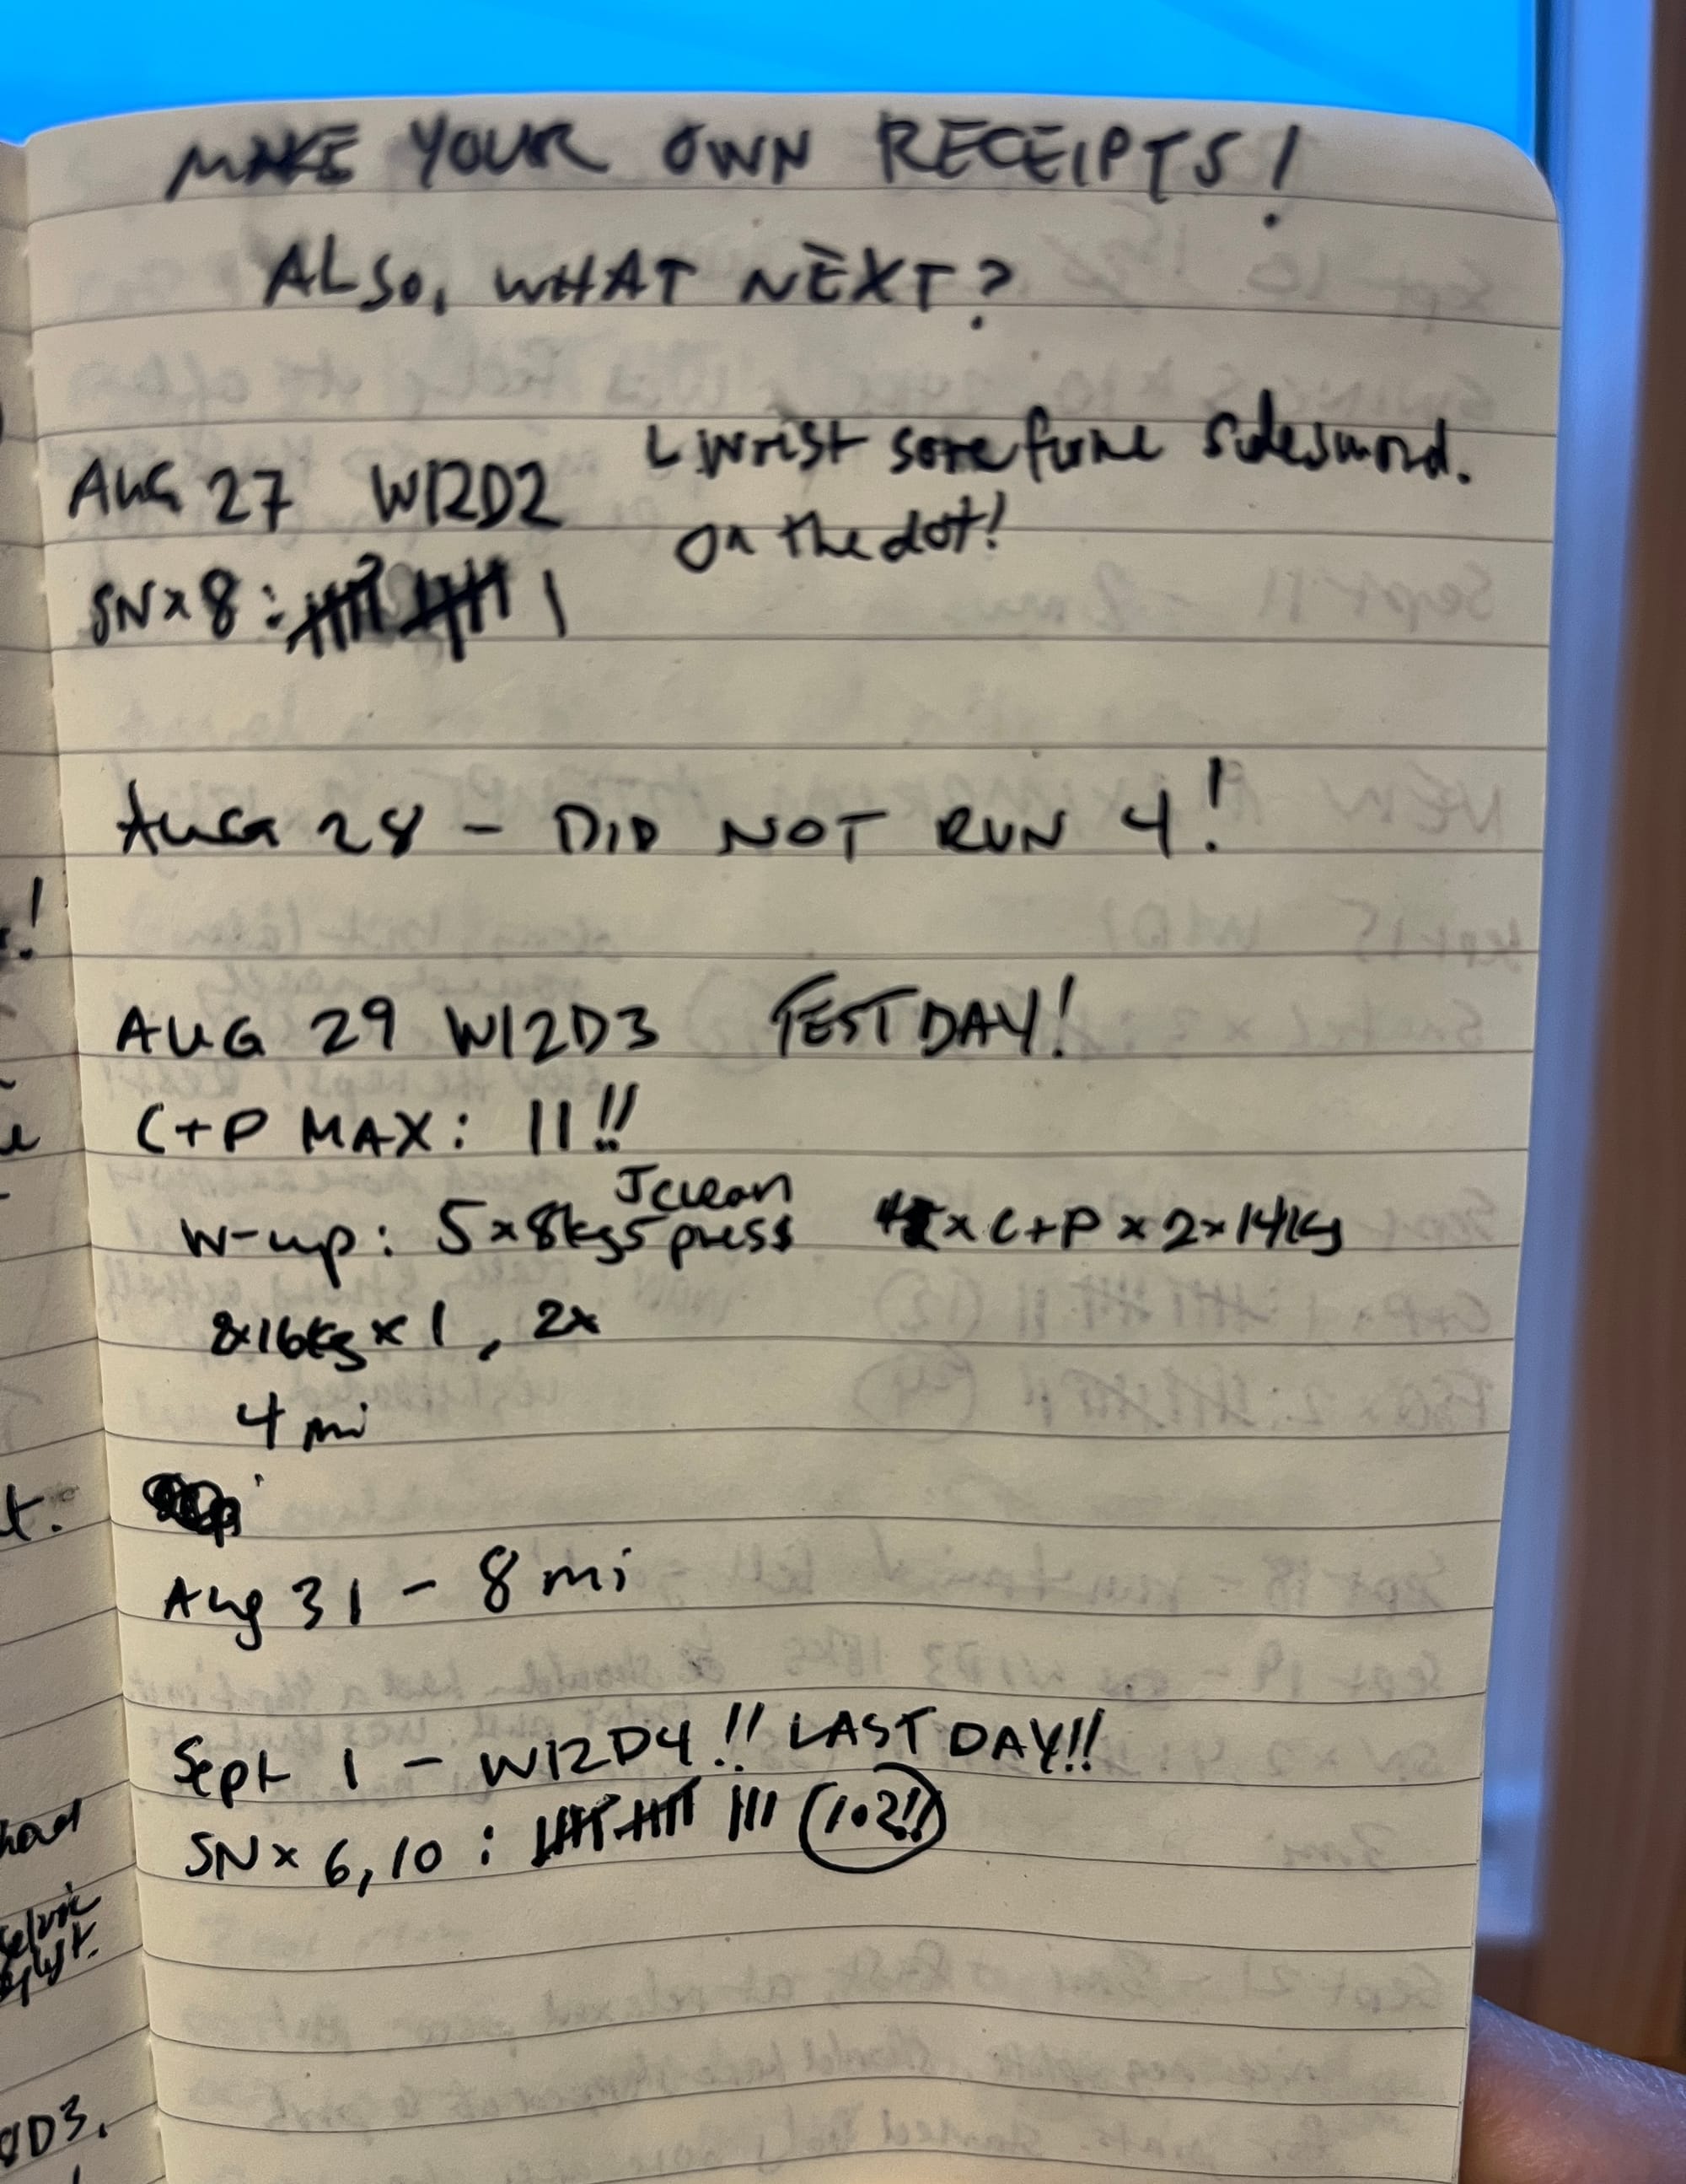 MAKE YOUR OWN RECEIPTS!
ALSO, WHAT NEXT?
AUG 27 W12D2 L wrist sore from sidesword.
On the dot!
SN x 8: |
AUG 28 - DID NOT RUN 4!
AUG 29 W12D3 TEST DAY!
C+P MAX: 11!!
w-up: 5 x 8kg 5 clean
5 press x C+P x 2 x 14kg
2x16kg x 1, 2x
4 mi
Aug 31 - 8 mi
Sept 1 - W12D4!! LAST DAY!!
SN x 6, 10: ||| (102!!)
had
t.
D3,